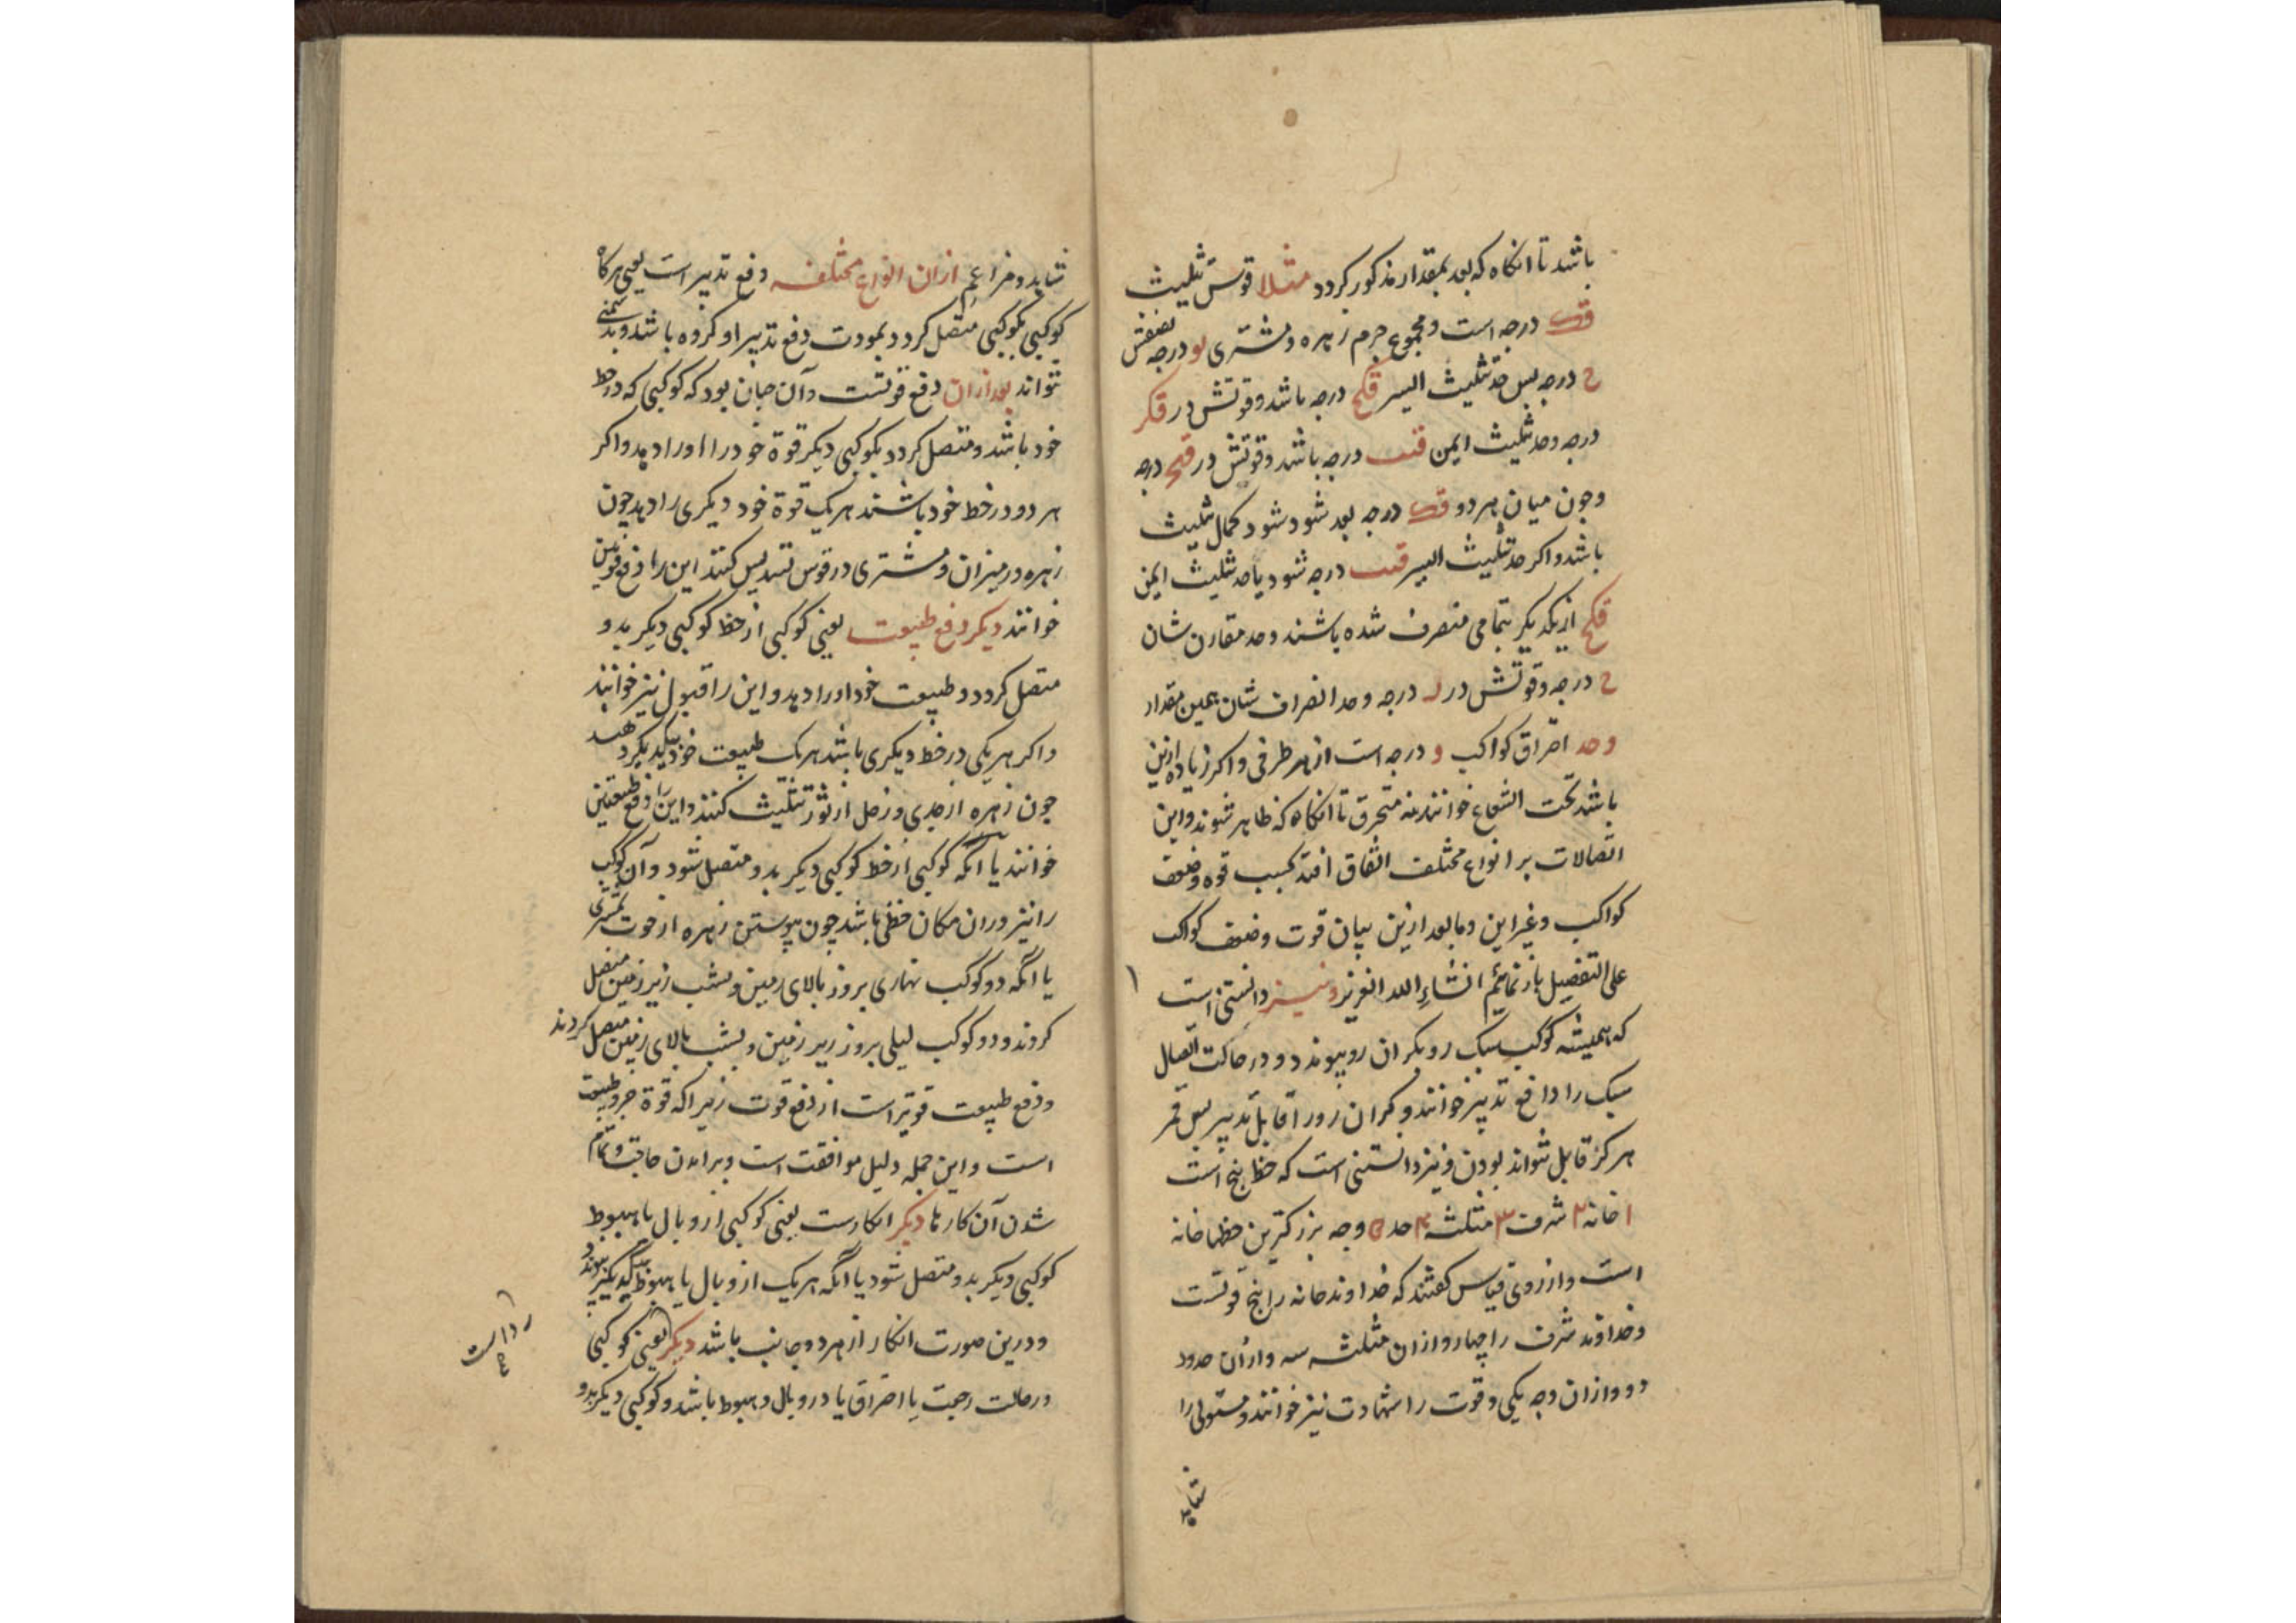 باشد تا انکاه که بعد بمقدار مذکور کردد مثلا قوس تثلیث
قک درجه است و مجموع جرم زهره و مشتری یو درجه نصفش
ح درجه پس حد تثلیث ایسر قکح درجه باشد و قوتش در قکر
درجه و حد تثلیث ایمن قیب درجه باشد و قوتش در قیح درجه
و چون میان هر دو قک درجه بعد شود شود کمال تثلیث
باشد و اکر حد تثلیث ایسر قیب درجه شود یا حد تثلیث ایمن
قکح از یکدیکر بتمامی منصرف شده باشند و حد مقارن شان
ح درجه و قوتش در درجه و حد انصراف شان بهمین مقدار
و حد احتراق کواکب و درجه است از هر طرفی و اکر زیاده ازین
باشد تحت الشعاع خوانند نه محترق تا انکاه که ظاهر شوند و این
اتصالات بر انواع مختلف اتفاق افتد بحسب قوه و ضعف
کواکب و غیر این و ما بعد ازین بیان قوت و ضعف کواکب
علی التفصیل باز نمائیم انشاء الله العزیز و نیز دانستنی است
که همیشه کوکب سبک رو بکران رو پیوندد و در حالت اتصال
سبک را دافع تدبیر خوانند و کران رو را قابل تدبیر پس قمر
هرکز قابل نتواند بودن و نیز دانستنی است که حظ پنج است
۱ خانه ۲ شرف ۳ مثلثه ۴ حد ۵ وجه بزرکترین حظها خانه
است و از روی قیاس کفتند که خداوند خانه را پنج قوتست
و خداوند شرف را چهار و ازان مثلثه سه و ازان حدود
دو و ازان وجه یکی و قوت را شهادت نیز خوانند و مستولی را
شاید
شاید و مزاعم ازان انواع مختلفه دفع تدبیر است یعنی هرکاه
کوکبی بکوکبی متصل کردد بمودت دفع تدبیر او کرده باشد و بدشمنی
نتواند بعد ازان دفع قوتست و آن چنان بود که کوکبی که در حظ
خود باشد و متصل کردد بکوکبی دیکر قوة خود را اورا دهد و اکر
هر دو در حظ خود باشند هر یک قوة خود دیکری را دهد چون
زهره در میزان و مشتری در قوس تسدیس کنند این را دفع قوتین
خوانند دیکر دفع طبیعت یعنی کوکبی از حظ کوکبی دیکر بدو
متصل کردد و طبیعت خود اورا دهد و این را قبول نیز خوانند
و اکر هر یکی در حظ دیکری باشد هر یک طبیعت خود بیکدیکر دهند
چون زهره از جدی و زحل از ثور تثلیث کنند و این را دفع طبیعتین
خوانند یا انکه کوکبی از حظ کوکبی دیکر بدو متصل شود و آن کوکب
را نیز دران مکان حظی باشد چون پیوستن زهره از حوت بمشتری
یا انکه دو کوکب نهاری بروز بالای زمین و بشب زیر زمین متصل
کردند و دو کوکب لیلی بروز زیر زمین و بشب بالای زمین متصل کردند
و دفع طبیعت قویتر است از دفع قوت زیرا که قوة جزو طبیعت
است و این جمله دلیل موافقت است و برامدن حاجت و تمام
شدن آن کارها دیکر انکارست یعنی کوکبی از وبال یا هبوط
کوکبی دیکر بدو متصل شود یا انکه هر یک از وبال یا هبوط بیکدیکر پیوندد
و درین صورت انکار از هر دو جانب باشد دیکر یعنی کوکبی
در حالت رجعت یا احتراق یا در وبال و هبوط باشد و کوکبی دیکر بدو
رداست